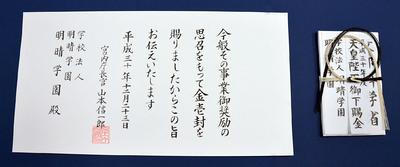 今般その事業御奨励の
思召をもって金壱封を
賜りましたからこの旨
お伝えいたします
平成三十年十二月二十三日
宮内庁長官 山本信一郎
学校法人
明晴学園
明晴学園殿
天皇陛下御下賜金
学校法人
明晴学園